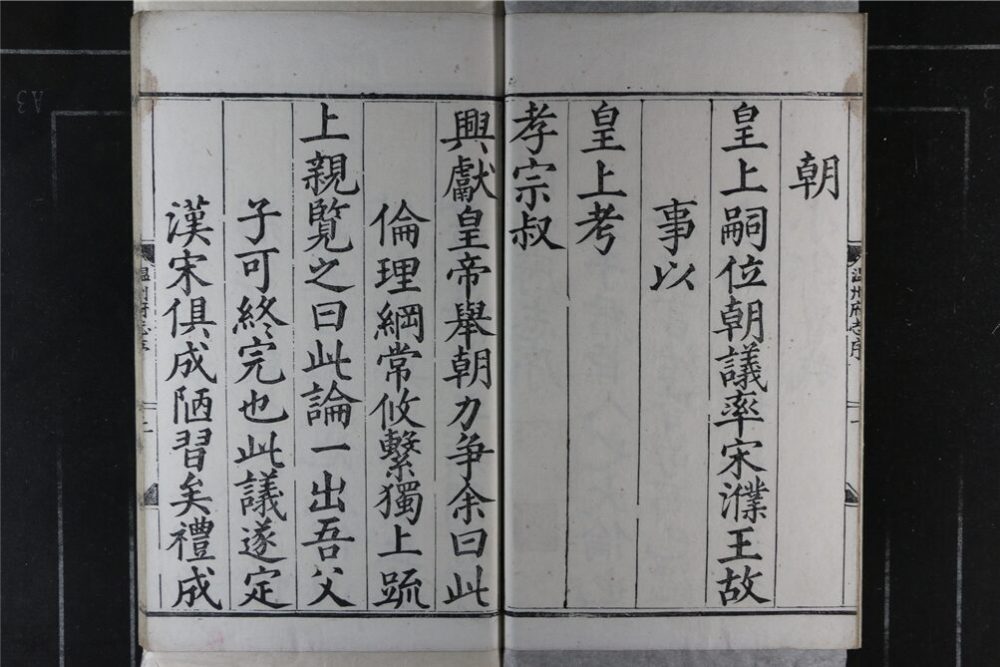 朝
皇上嗣位朝議率宋濮王故
事以
皇上考
孝宗叔
興獻皇帝舉朝力争余曰此
倫理綱常攸繫獨上䟽
上親覽之曰此論一出吾父
子可終完也此議遂定
漢宋俱成陋習矣禮成
温州府志序
一
温州府志序
二